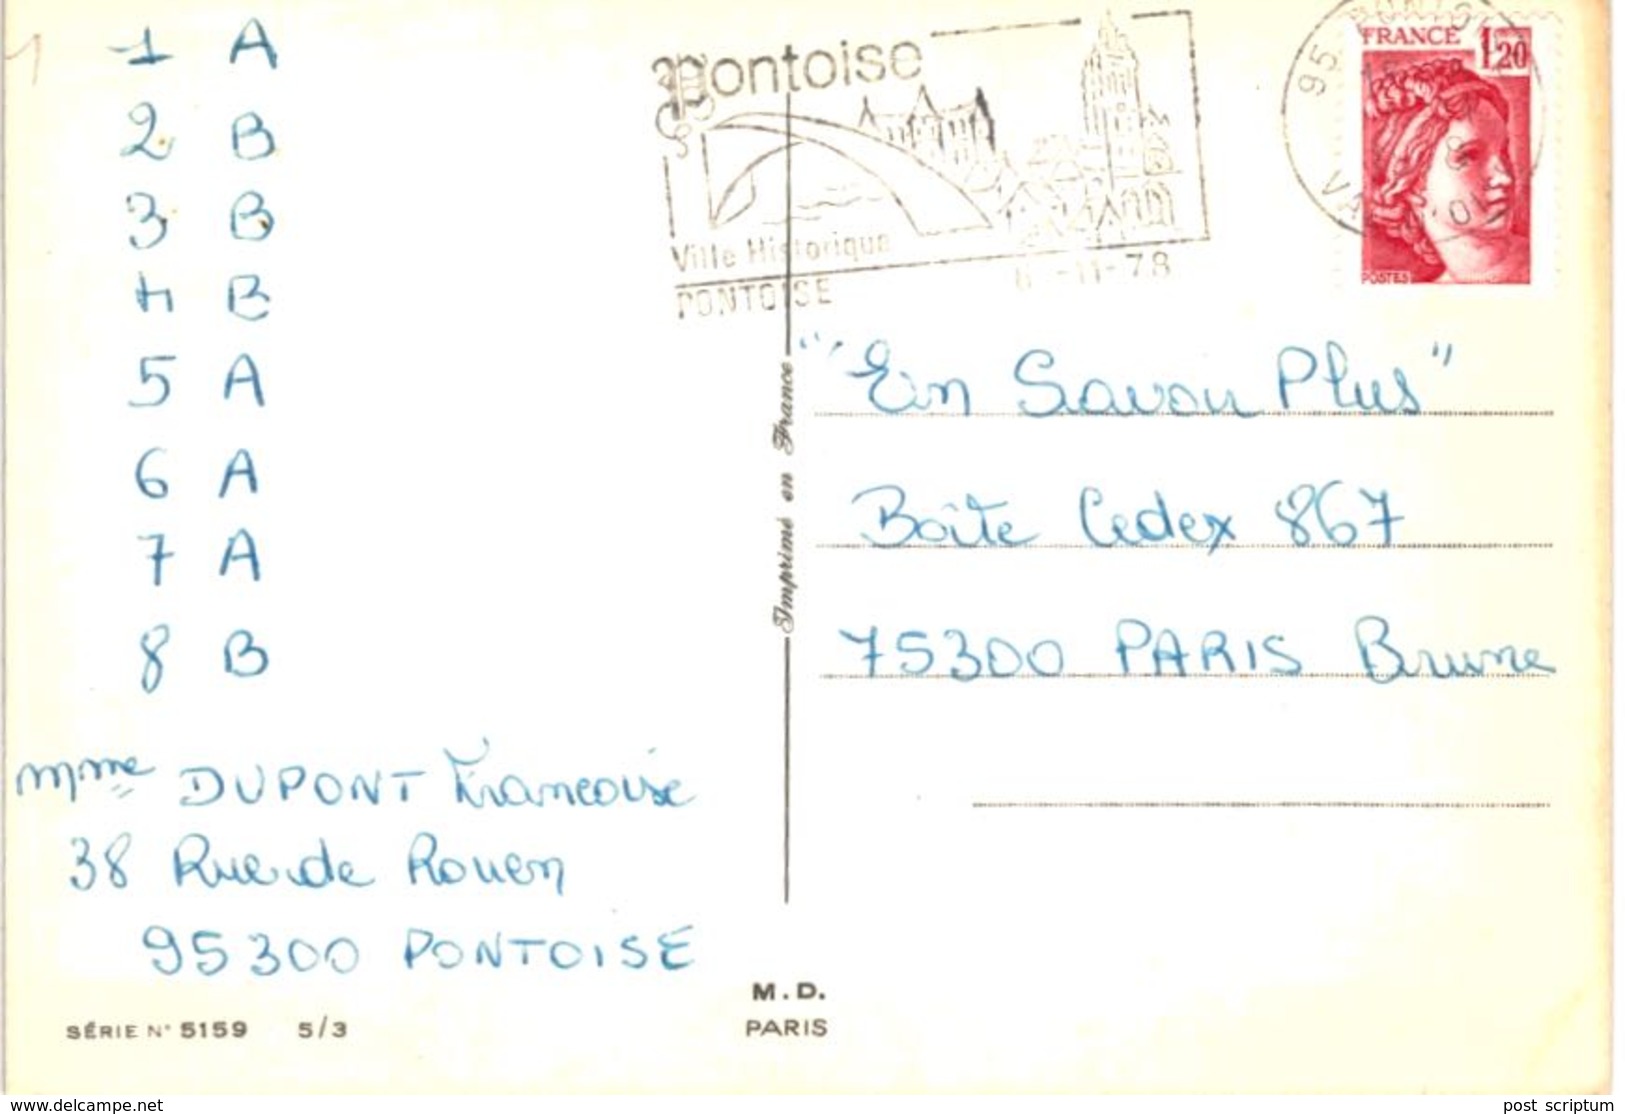 1 A
2 B
3 B
4 B
5 A
6 A
7 A
8 B
Mme DUPONT Francoise
38 Rue de Rouen
95300 PONTOISE
SÉRIE N° 5159 5/3
Pontoise
Ville Historique
PONTOISE
-11-78
FRANCE 1,20
POSTES
95
Imprimé en France
"En Savoir Plus"
Boîte Cedex 867
75300 PARIS Brune
M.D.
PARIS
www.delcampe.net
post_scriptum